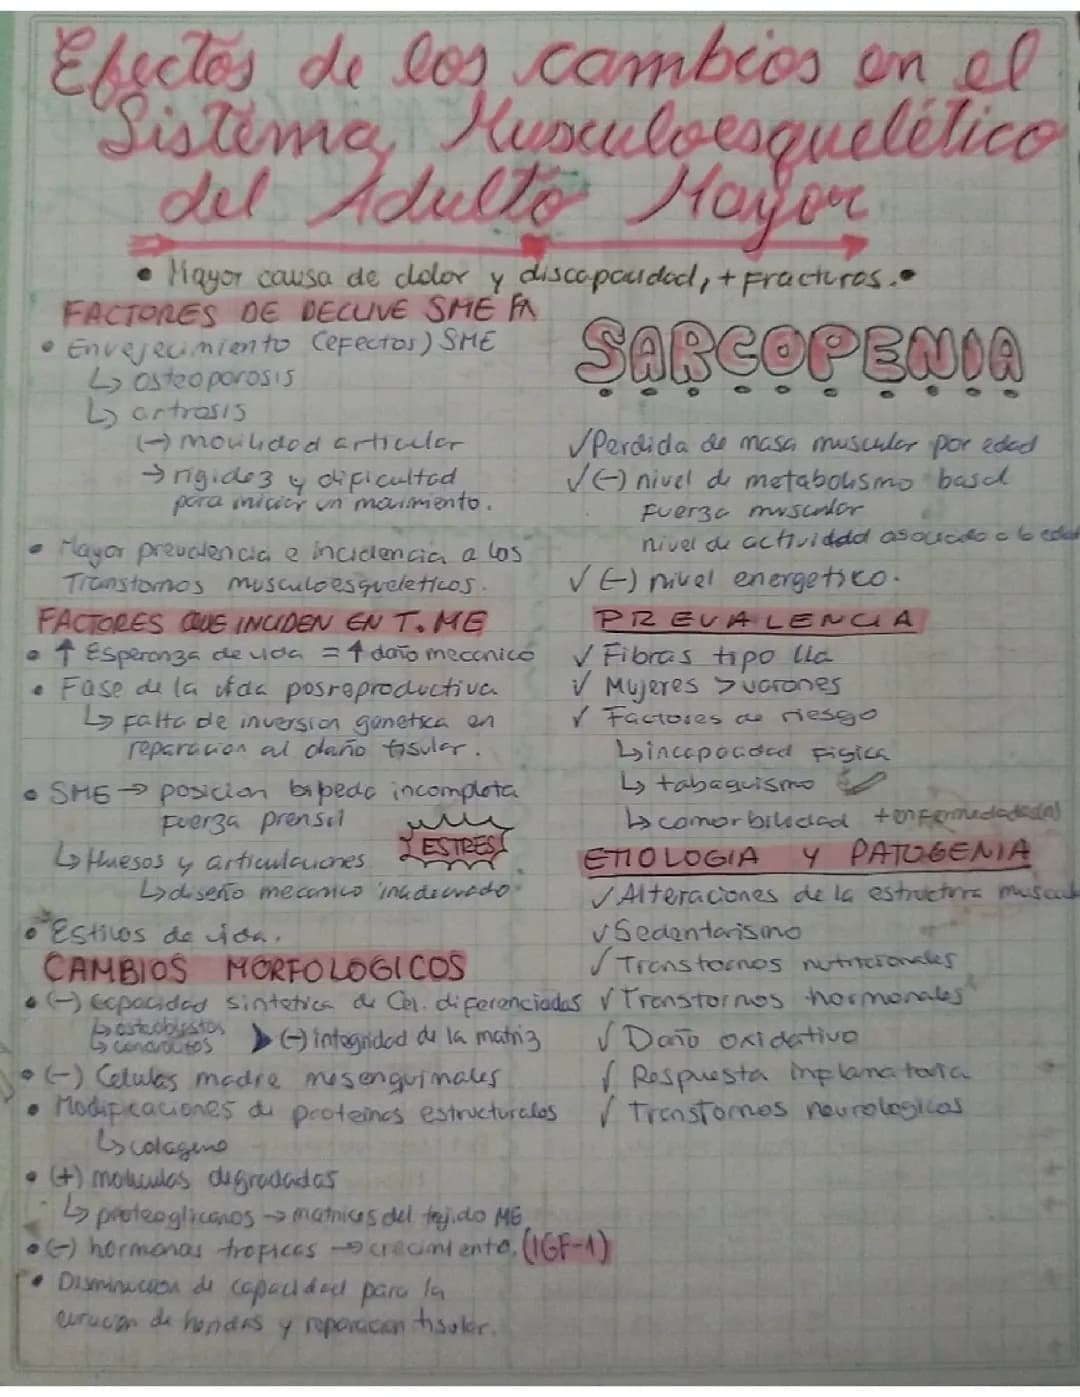 Efectos de los cambios en el
Sistema Musculoesquelético
del Adulto Mayor
• Mayor causa de dolor y discapacidad, + Fracturas. •
FACTORES DE DECLIVE SME FA
• Envejecimiento (efectos) SME
↳ osteoporosis
↳ artrosis
(-) movilidad articular
→ rigidez y dificultad
para iniciar un movimiento.
• Mayor prevalencia e incidencia a los
Transtornos musculoesqueleticos.
FACTORES QUE INCIDEN EN T. ME
• ↑ Esperanza de vida = ↑ daño mecanico
• Fase de la vida posreproductiva
↳ falta de inversion genetica en
reparacion al daño tisular.
• SME → posicion bipeda incompleta
Fuerza prensil
ESTRES
↳ Huesos y articulaciones
↳ diseño mecanico inadecuado
• Estilos de vida.
CAMBIOS MORFOLOGICOS
• (-) capacidad sintetica de Cel. diferenciadas
↳ osteoblastos
↳ condrocitos
(-) integridad de la matriz
• (-) Celulas madre mesenquimales
• Modificaciones de proteinas estructurales
↳ colageno
• (+) moleculas degradadas
↳ proteoglicanos → matrices del tejido ME
• (-) hormonas troficas → crecimiento. (IGF-1)
• Disminucion de capacidad para la
curacion de heridas y reparacion tisular.
SARCOPENIA
✓ Perdida de masa muscular por edad
✓ (-) nivel de metabolismo basal
Fuerza muscular
nivel de actividad asociado a la edad
✓ (-) nivel energetico.
PREVALENCIA
✓ Fibras tipo IIa
✓ Mujeres > varones
✓ Factores de riesgo
↳ incapacidad Fisica
↳ tabaquismo
↳ comorbilidad + enfermedades
ETIOLOGIA Y PATOGENIA
✓ Alteraciones de la estructura
✓ Sedentarismo
✓ Transtornos nutricionales
✓ Transtornos hormonales
✓ Daño oxidativo
✓ Respuesta inflamatoria
✓ Transtornos neurologicos